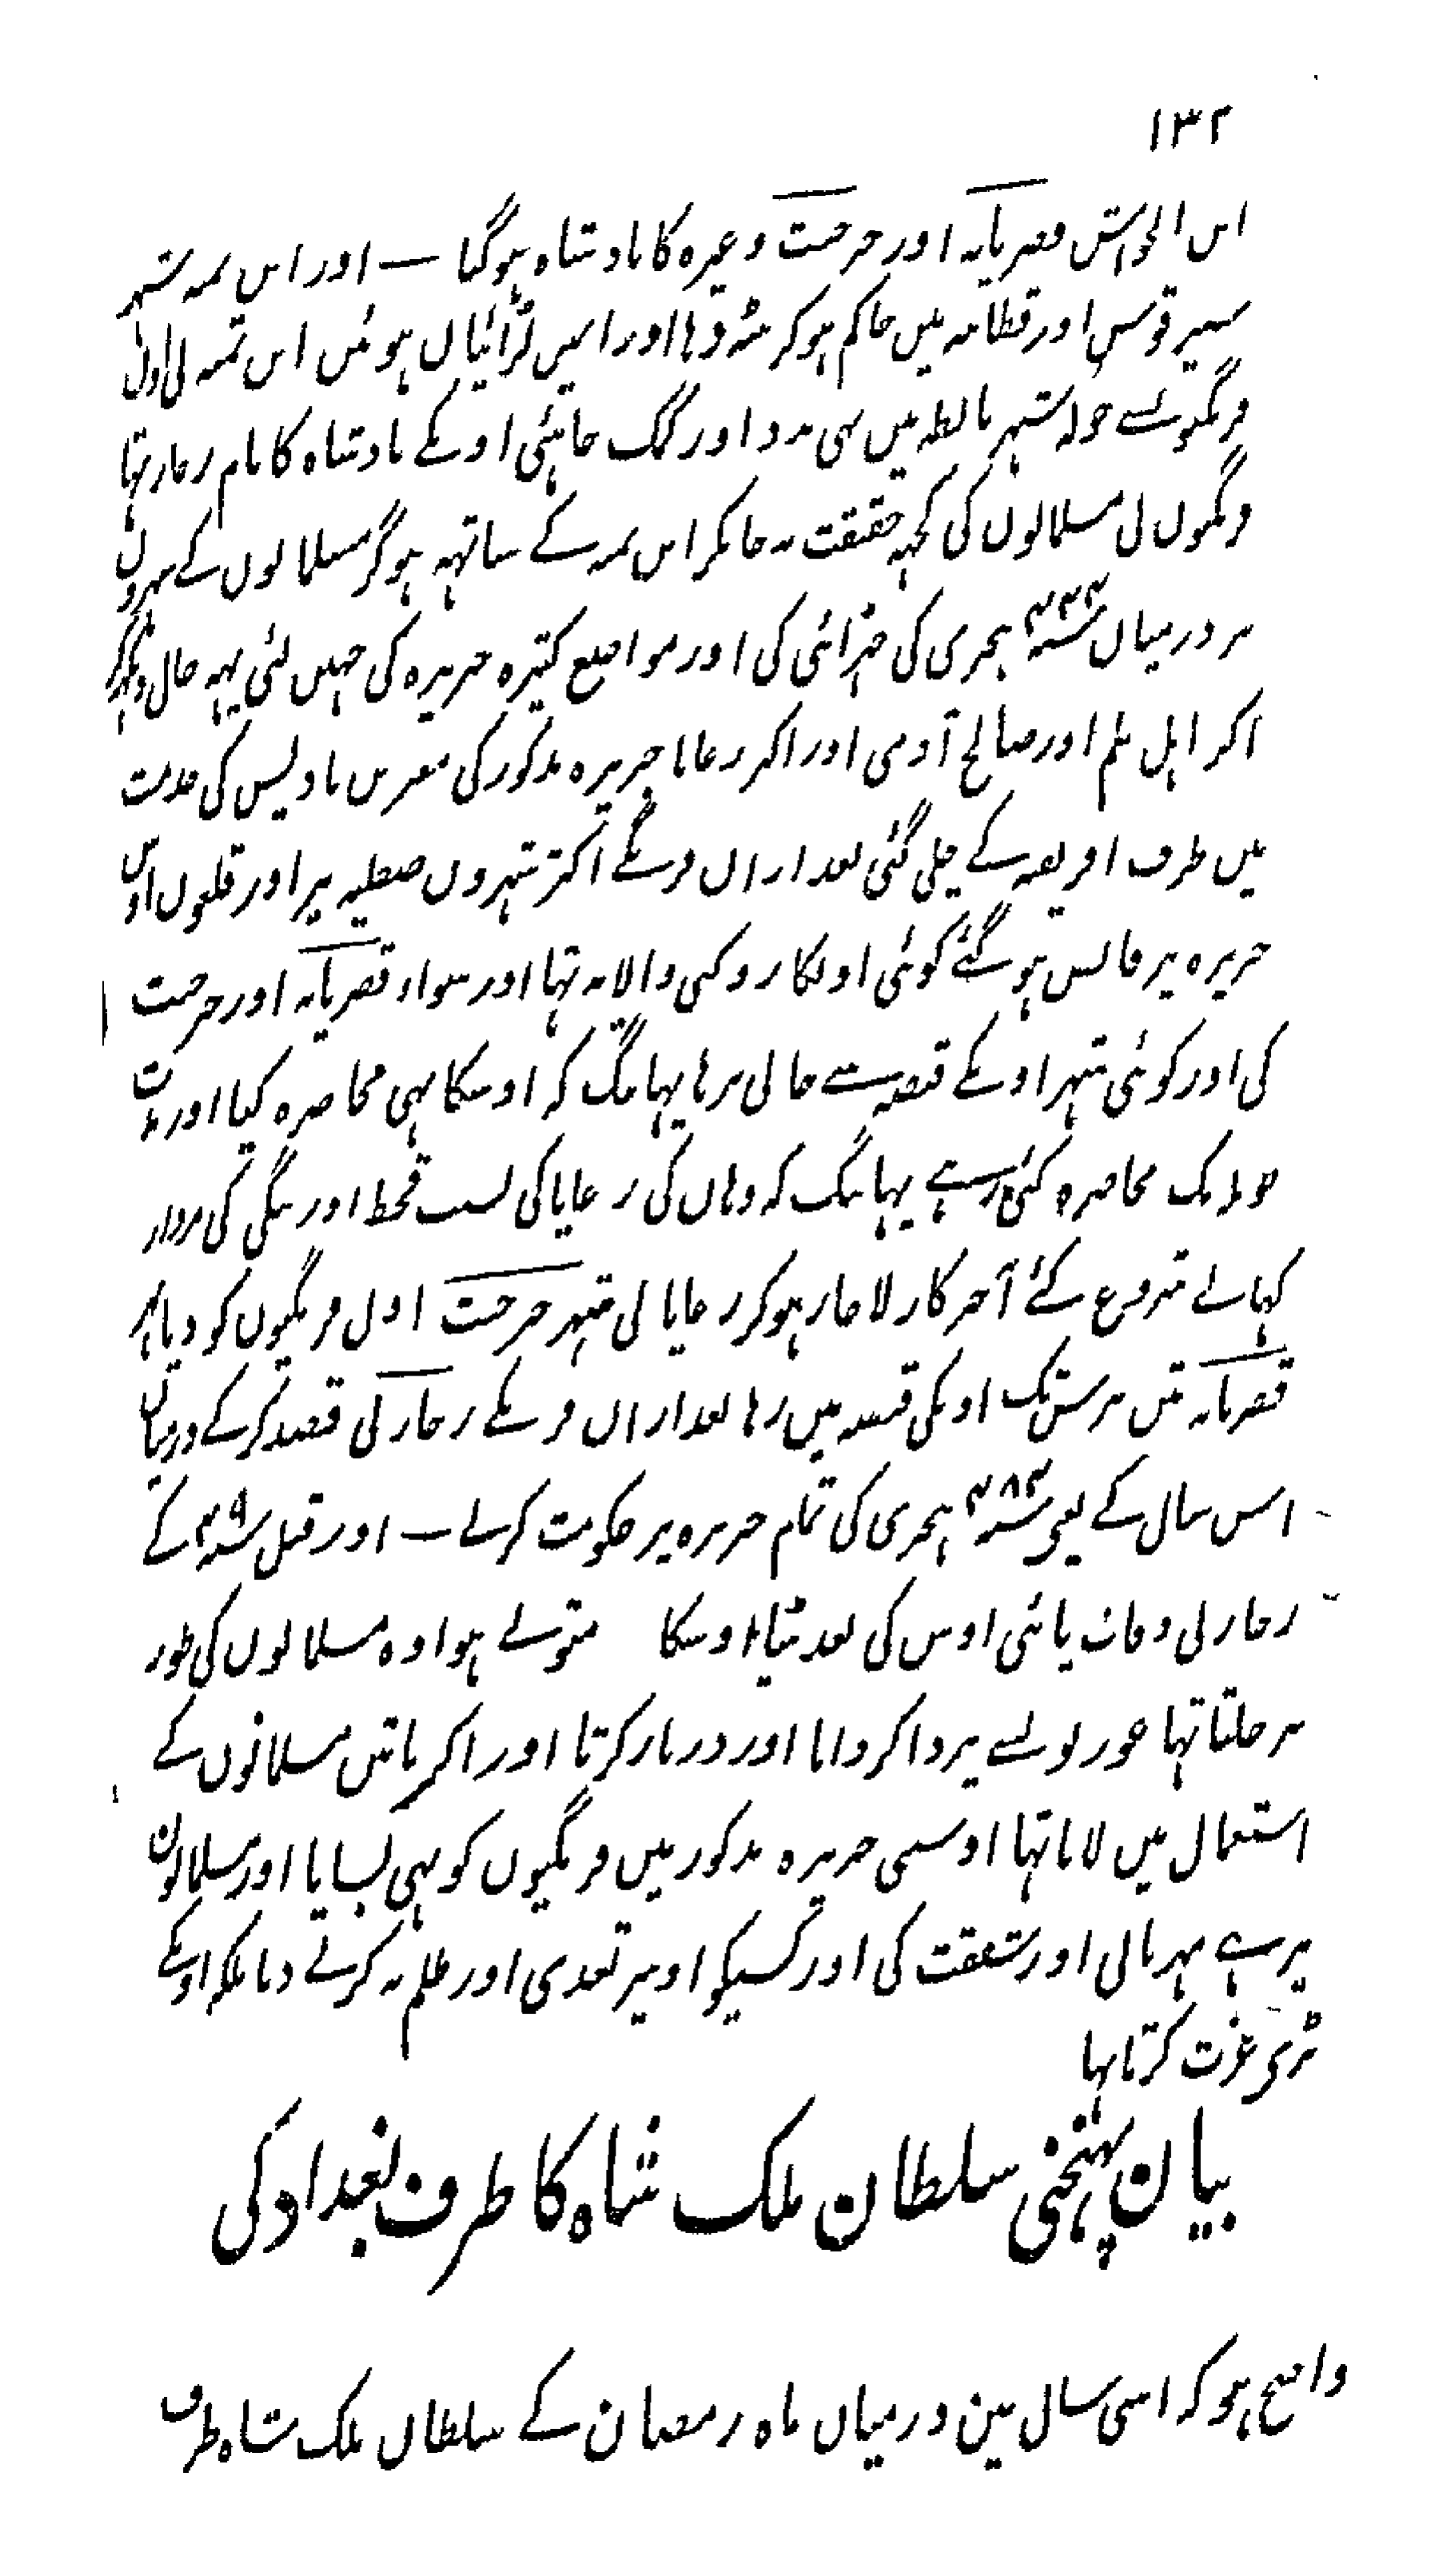 ۱۳۲
ابن الحواش قصریانہ اور جرجنت وغیرہ کا بادشاہ ہوگیا — اور ابن ثمنہ شہر
سیرقوس اور قطانہ میں حاکم ہوکر اور لڑائیاں ہوئیں ابن ثمنہ نی اول
فرنگیوں سے جو شہر مالطہ میں تہی مدد اور کمک چاہئی اونکے بادشاہ کا نام رجار تہا
فرنگیوں نی مسلمانوں کی کچہہ حقیقت نہ جانکر ابن ثمنہ کے ساتہہ ہوکر مسلمانوں کے شہروں
پر درمیان ہجری کی چڑائی کی اور مواضع کثیرہ جزیرہ کی چہین لئی یہہ حال دیکہکر
اکثر اہل علم اور صالح آدمی اور اکثر رعایا جزیرہ مذکور کی معز بن بادیس کی خدمت
میں طرف افریقہ کے چلی گئی بعد ازاں فرنگے اکثر شہروں صقلیہ پر اور قلعوں اوس
جزیرہ پر قابض ہوگئے کوئی اونکا روکنی والا نہ تہا اور سواء قصریانہ اور جرجنت
کی اور کوئی شہر اونکے قبضہ سے خالی نرہا یہانتک کہ اوسکا بہی محاصرہ کیا اور مدت
طویلہ تک محاصرہ کئی رہے یہانتک کہ وہاں کی رعایا کی بسبب قحط اور تنگی کی مردار
کہانے شروع کئے آخر کار لاچار ہوکر رعایا نی شہر جرجنت اول فرنگیوں کو دیا پہر
قصریانہ تین برس تک اونکی قبضہ میں رہا بعد ازاں فرنگے رجار نی قصد کرکے درمیان
اس سال کے یعنی ۴۸۴ ہجری کی تمام جزیرہ پر حکومت کرلے — اور قبل ۴۹۰ کے
رجار نی وفات پائی اوس کی بعد بیٹا اوسکا متولے ہوا وہ مسلمانوں کی طور
پر چلتا تہا عورتوں سے پردا کرواتا اور دربار کرتا اور اکثر باتیں مسلمانوں کے
استعمال میں لاتا تہا اوسی جزیرہ مذکور میں فرنگیوں کو بہی بسایا اور مسلمانوں
پر بہے مہربانی اور شفقت کی اور کسیکو اونپر تعدی اور ظلم نہ کرنے دیا بلکہ اونکے
بڑی عزت کرتا تہا
بیان پہنچنی سلطان ملک شاہ کا طرف بغداد کی
واضح ہو کہ اسی سال مین درمیاں ماہ رمضان کے سلطاں ملک شاہ طرف